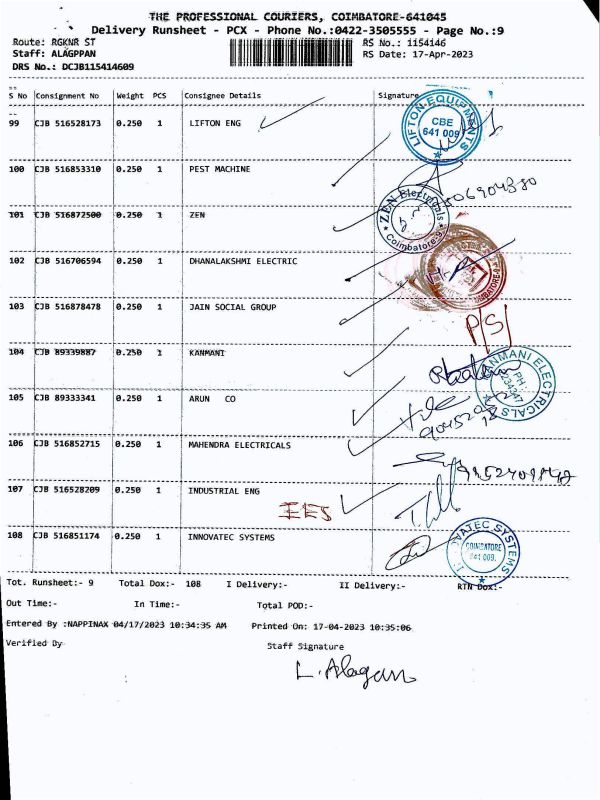 THE PROFESSIONAL COURIERS, COIMBATORE-641045
Delivery Runsheet - PCX - Phone No.:0422-3505555 - Page No.:9
Route: RGKNR ST RS No.: 1154146
Staff: ALAGPPAN RS Date: 17-Apr-2023
DRS No.: DCJB115414609
S No Consignment No Weight PCS Consignee Details Signature
99 CJB 516528173 0.250 1 LIFTON ENG
LIFTON EQUIPMENTS
CBE
641 009
100 CJB 516853310 0.250 1 PEST MACHINE
101 CJB 516872500 0.250 1 ZEN
ZEN Electricals
Coimbatore-9
102 CJB 516706594 0.250 1 DHANALAKSHMI ELECTRIC
103 CJB 516878478 0.250 1 JAIN SOCIAL GROUP
P/S/
104 CJB 89339887 0.250 1 KANMANI
KANMANI ELECTRICALS
PH
105 CJB 89333341 0.250 1 ARUN CO
106 CJB 516852715 0.250 1 MAHENDRA ELECTRICALS
107 CJB 516528209 0.250 1 INDUSTRIAL ENG
EES
108 CJB 516851174 0.250 1 INNOVATEC SYSTEMS
INNOVATEC SYSTEMS
COIMBATORE
641 009.
Tot. Runsheet:- 9 Total Dox:- 108 I Delivery:- II Delivery:- RTN Dox:-
Out Time:- In Time:- Total POD:-
Entered By :NAPPINAX 04/17/2023 10:34:35 AM Printed On: 17-04-2023 10:35:06
Verified By Staff Signature
L. Alagan